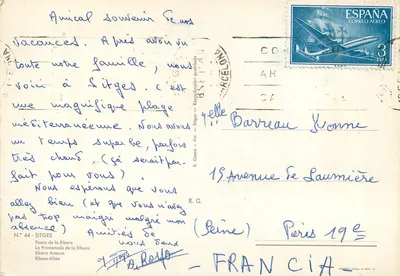 Amical souvenir de nos
vacances. Après avoir vu
toute notre famille, nous
voici à Sitges. C'est
une magnifique plage
méditerranéenne. Nous avons
un temps superbe, parfois
très chaud. (ça serait par-
fait pour vous)
Nous espérons que vous
allez bien (et que vous n'avez
pas trop maigri malgré mon
absence)
Amitiés de
nous deux
N.º 44 - SITGES
Paseo de la Ribera
La Promenade de la Ribera
Ribera Avenue
Ribera-Allee
ESPAÑA
CORREO AEREO
3
PTAS
BARCELONA
CO
AH
CA
Melle Barreau Yvonne
15 Avenue de Laumière
(Seine) Paris 19e
- FRANCIA -
R. G.